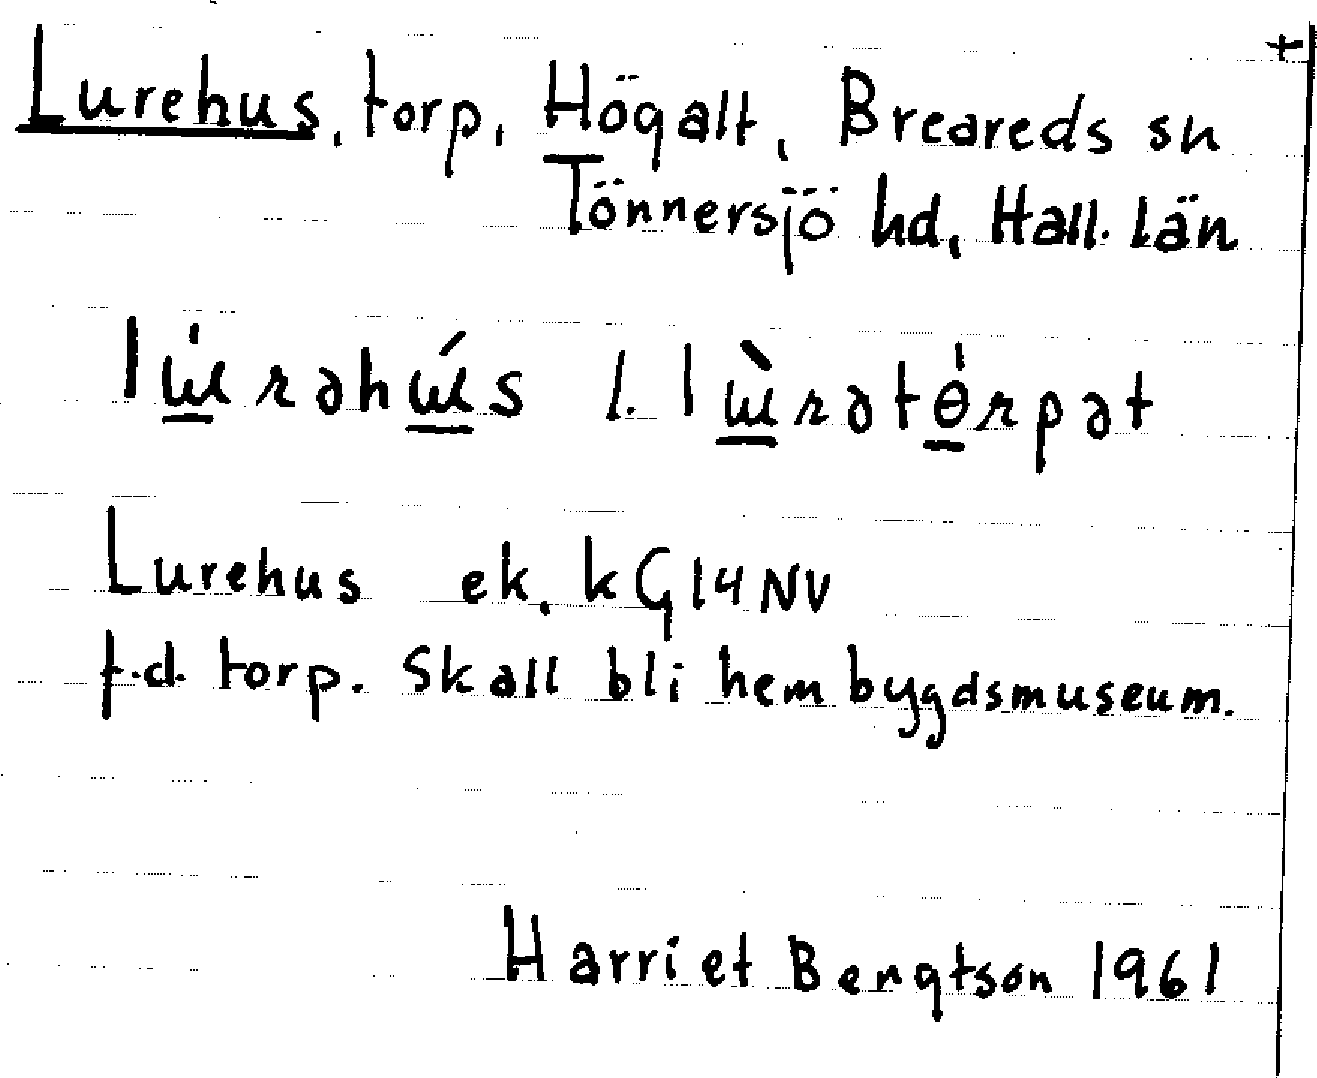 Lurehus, torp, Högalt, Breareds sn
Tönnersjö hd, Hall. län
lɯ̱̀rəhɯ̱́s l. lɯ̱̀rətɵ̱́rpət
Lurehus ek. k G14NV
f.d. torp. Skall bli hembygdsmuseum.
Harriet Bengtson 1961